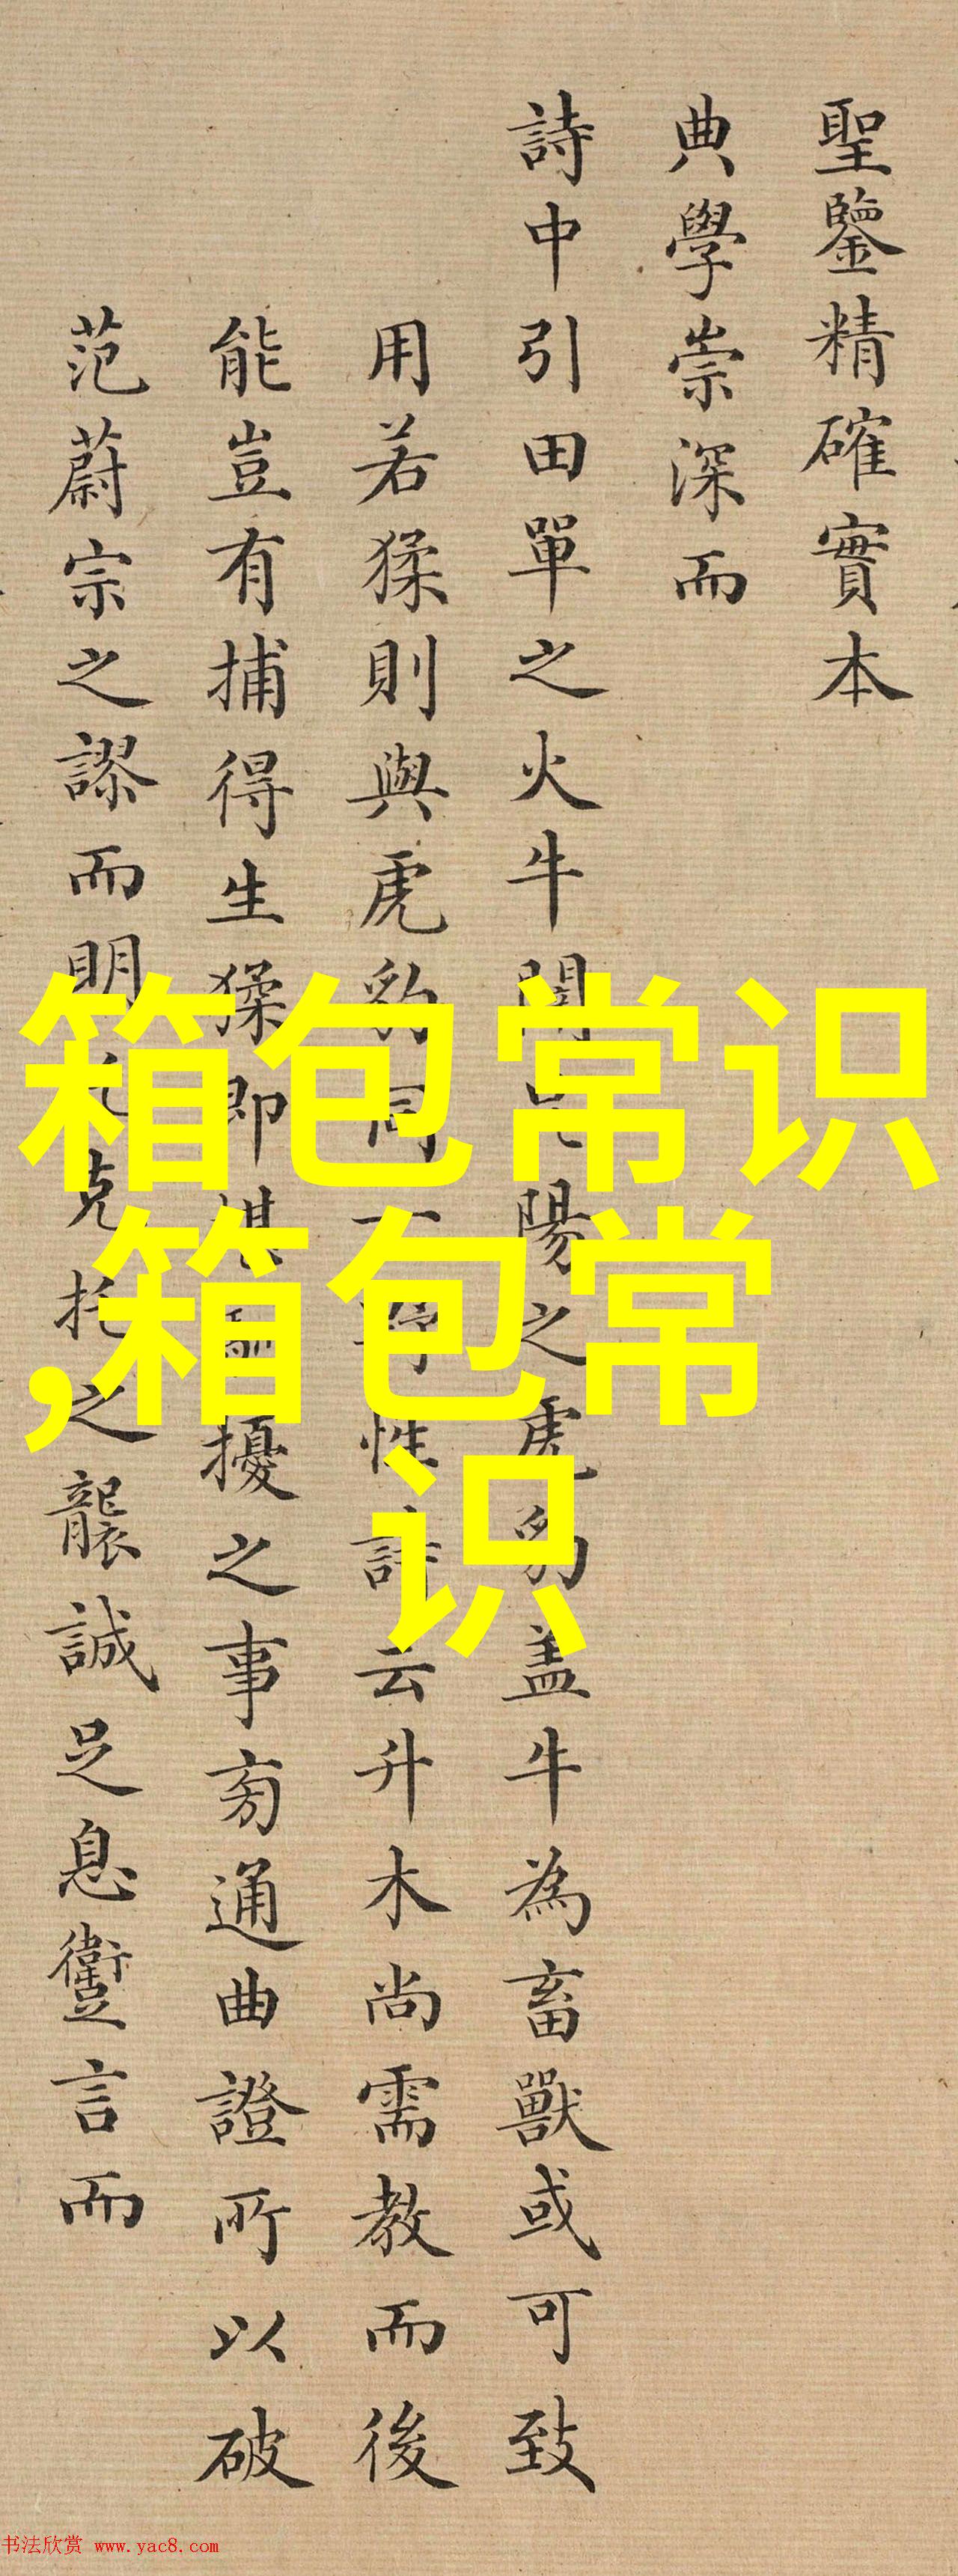 聖鑒精確實本
典學崇深而
詩中引田單之火牛闢昆陽之虎豹盖牛為畜獸或可致
用若猱則與虎豹同一野性詩云升木尚需教而後
能豈有捕得生猱即堪馴擾之事旁通曲證所以破
范蔚宗之謬而明托克托之襲誠足息讏言而
箱包常识
,箱包常
识
书法欣赏 www.yac8.com